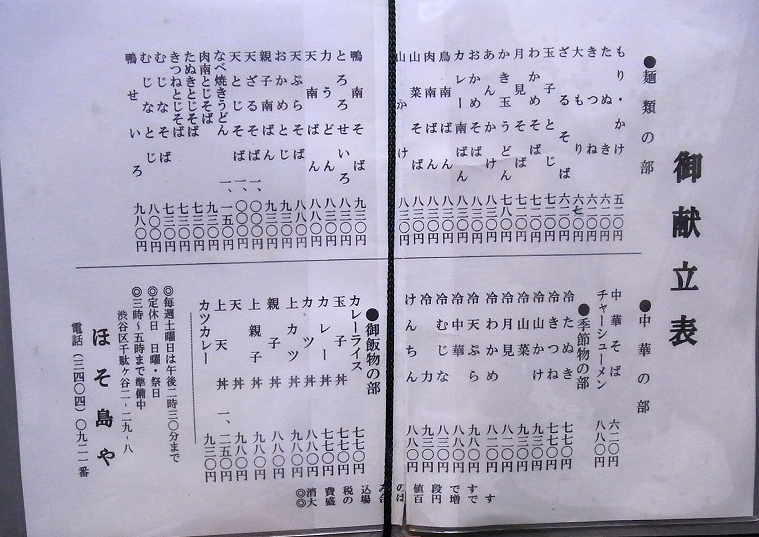 御献立表
●麺類の部
もり・かけ 五二〇円
たぬき 六二〇円
きつね 六二〇円
大もり 六七〇円
ざるそば 六二〇円
玉子とじ 七二〇円
わかめそば 七二〇円
月見そば 七二〇円
かき玉うどん 七八〇円
あんかけ 八三〇円
おかめそば 八三〇円
カレー南ばん 八三〇円
鳥南ばん 八三〇円
肉南ばん 八三〇円
山菜そば 八三〇円
山かけ 八三〇円
鴨南そば 九三〇円
とろろせいろ 八三〇円
力うどん 八三〇円
天南ばん 八八〇円
天ぷらそば 八八〇円
おかめとじ 九三〇円
親子南ばん 九三〇円
天ざるそば 一、〇〇〇円
天とじそば 一、〇〇〇円
なべ焼きうどん 一、一五〇円
肉南とじそば 九三〇円
たぬきとじそば 七三〇円
きつねとじそば 七三〇円
むじなそば 七三〇円
むじなとじ 八〇〇円
鴨せいろ 九八〇円
●中華の部
中華そば 六二〇円
チャーシューメン 八八〇円
●季節物の部
冷たぬき 七七〇円
冷きつね 七七〇円
冷山かけ 九三〇円
冷山菜 九三〇円
冷月見 八二〇円
冷わかめ 八二〇円
冷天ぷら 九八〇円
冷中華 八八〇円
冷むじな 八八〇円
冷力 九三〇円
けんちん 八八〇円
●御飯物の部
カレーライス 七七〇円
玉子丼 七七〇円
カレー丼 七七〇円
カツ丼 八八〇円
上カツ丼 九八〇円
親子丼 八八〇円
上親子丼 九八〇円
天丼 九八〇円
上天丼 一、二五〇円
カツカレー 九三〇円
◎消費税込みの値段です
◎大盛の場合は百円増です
◎毎週土曜日は午後二時三〇分まで
◎定休日 日曜・祭日
◎三時〜五時まで準備中
渋谷区千駄ヶ谷二-二九-八
ほそ島や
電話(三四〇四)〇九二一番